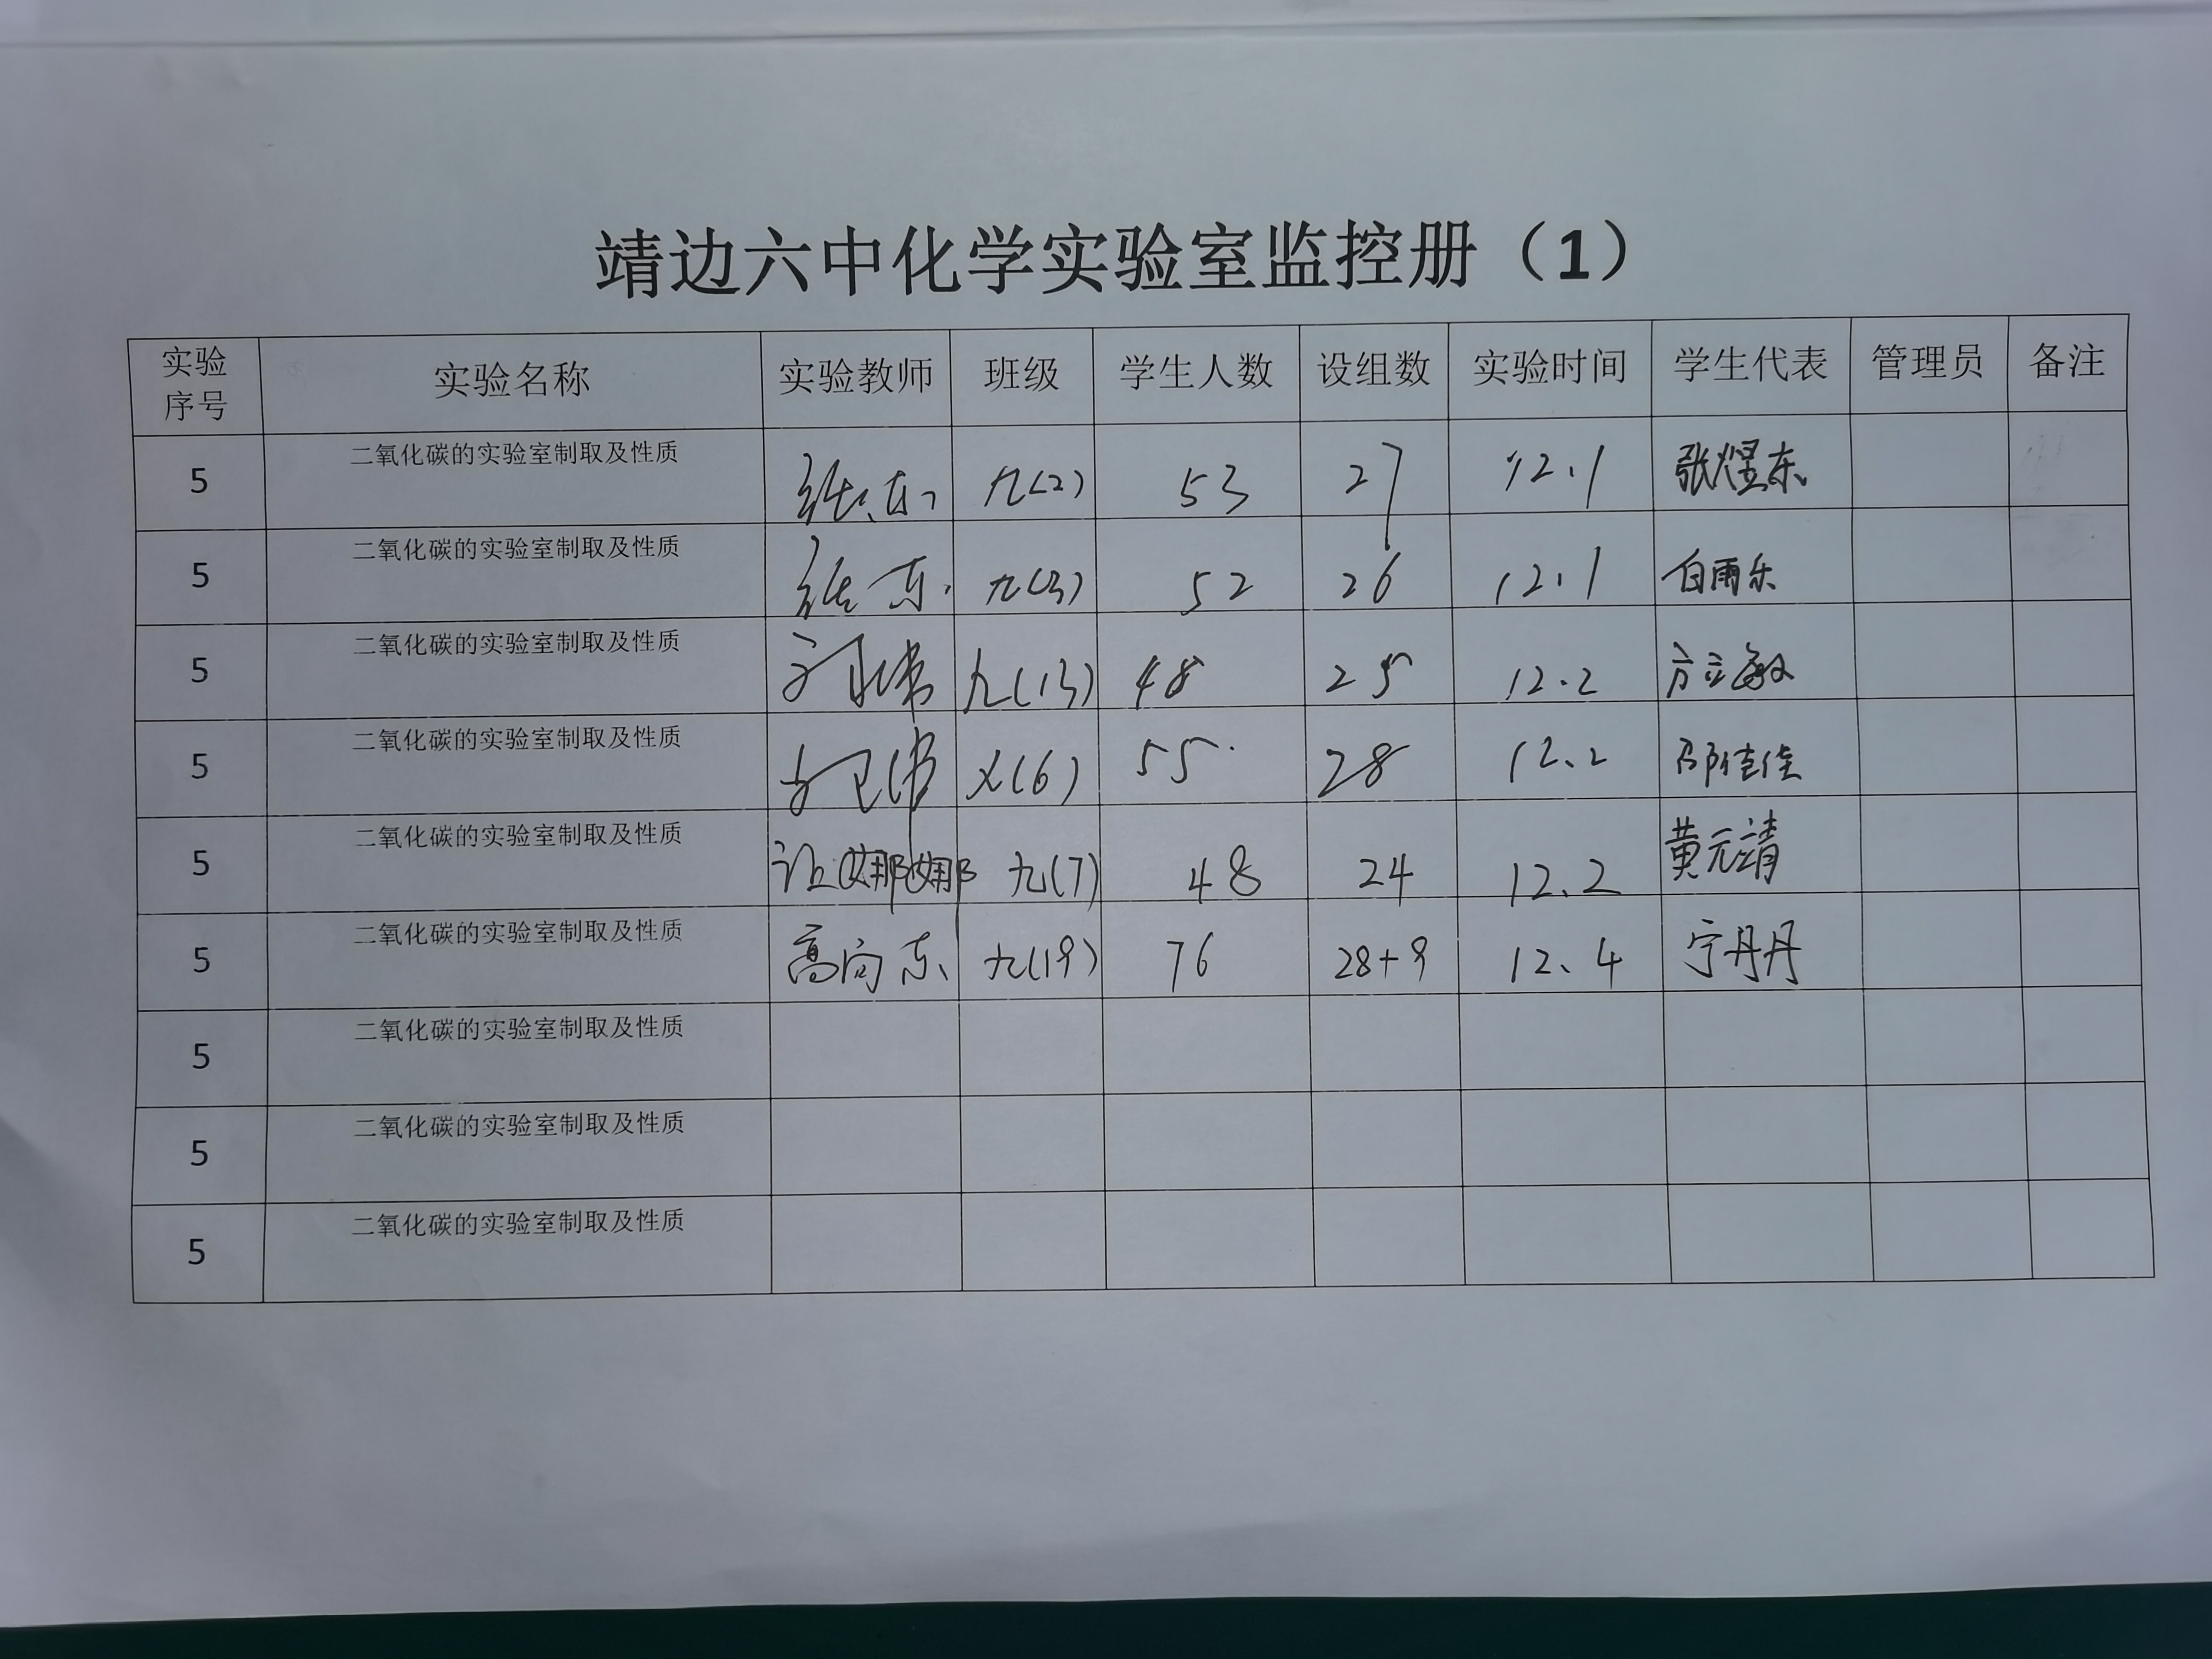 靖边六中化学实验室监控册（1）
实验序号 实验名称 实验教师 班级 学生人数 设组数 实验时间 学生代表 管理员 备注
5 二氧化碳的实验室制取及性质 九(2) 53 27 12.1 张煜东
5 二氧化碳的实验室制取及性质 九(3) 52 26 12.1 白雨乐
5 二氧化碳的实验室制取及性质 九(13) 48 25 12.2 方立敏
5 二氧化碳的实验室制取及性质 (6) 55 28 12.2 邵佳佳
5 二氧化碳的实验室制取及性质 娜娜 九(7) 48 24 12.2 黄元靖
5 二氧化碳的实验室制取及性质 高向东 九(19) 76 28+9 12.4 宁丹丹
5 二氧化碳的实验室制取及性质
5 二氧化碳的实验室制取及性质
5 二氧化碳的实验室制取及性质